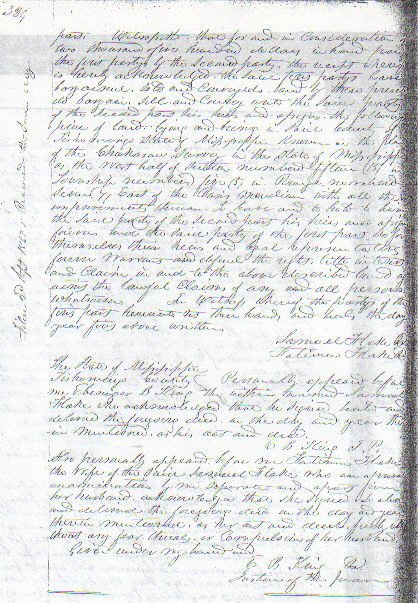 389
part Witnesseth that for and in Consideration
two thousand five hundred dollars in hand paid
the first party by the Second party the receipt whereof
is hereby acknowledged the said first party have
bargained Sold and Conveyed and by these presents
do bargain Sell and Convey unto the Said party
of the Second part his heirs and assigns the following
piece of land lying and being in Said County of
Tishomingo State of Mississippi Known on the plan
of the Chickasaw Survey in the State of Mississippi
as the West half of Section numbered fifteen (15) in
Township numbered five 5, in Range numbered
Seven East of the Basis Meridian with all the
the Said party of the second part his heirs and assigns
forever and the Said party of the first part do
themselves their heirs and legal representatives
forever Warrant and defend the right title interest
and Claim in and to the above described land
against the lawful Claims of any and all persons
Whatsoever In Witness Whereof the party of the
first part hereunto set their hands and seals the day
year first above written
Samuel Flake
The State of Mississippi
Tishomingo County Personally appeared before
me Ebenezer B King the within named Samuel
Flake who acknowledged that he signed sealed and
delivered the foregoing deed on the day and year there
in mentioned as his act and deed
E B King J. P.
Also personally appeared before me Flake
the Wife of the Said Samuel Flake who on a private
examination by me separate and apart from
her husband acknowledged that she signed sealed
and delivered the foregoing deed on the day and year
therein mentioned as her act and deed freely
without any fear threat or Compulsion of her husband
Given under my hand and
E B King
Justice of the peace